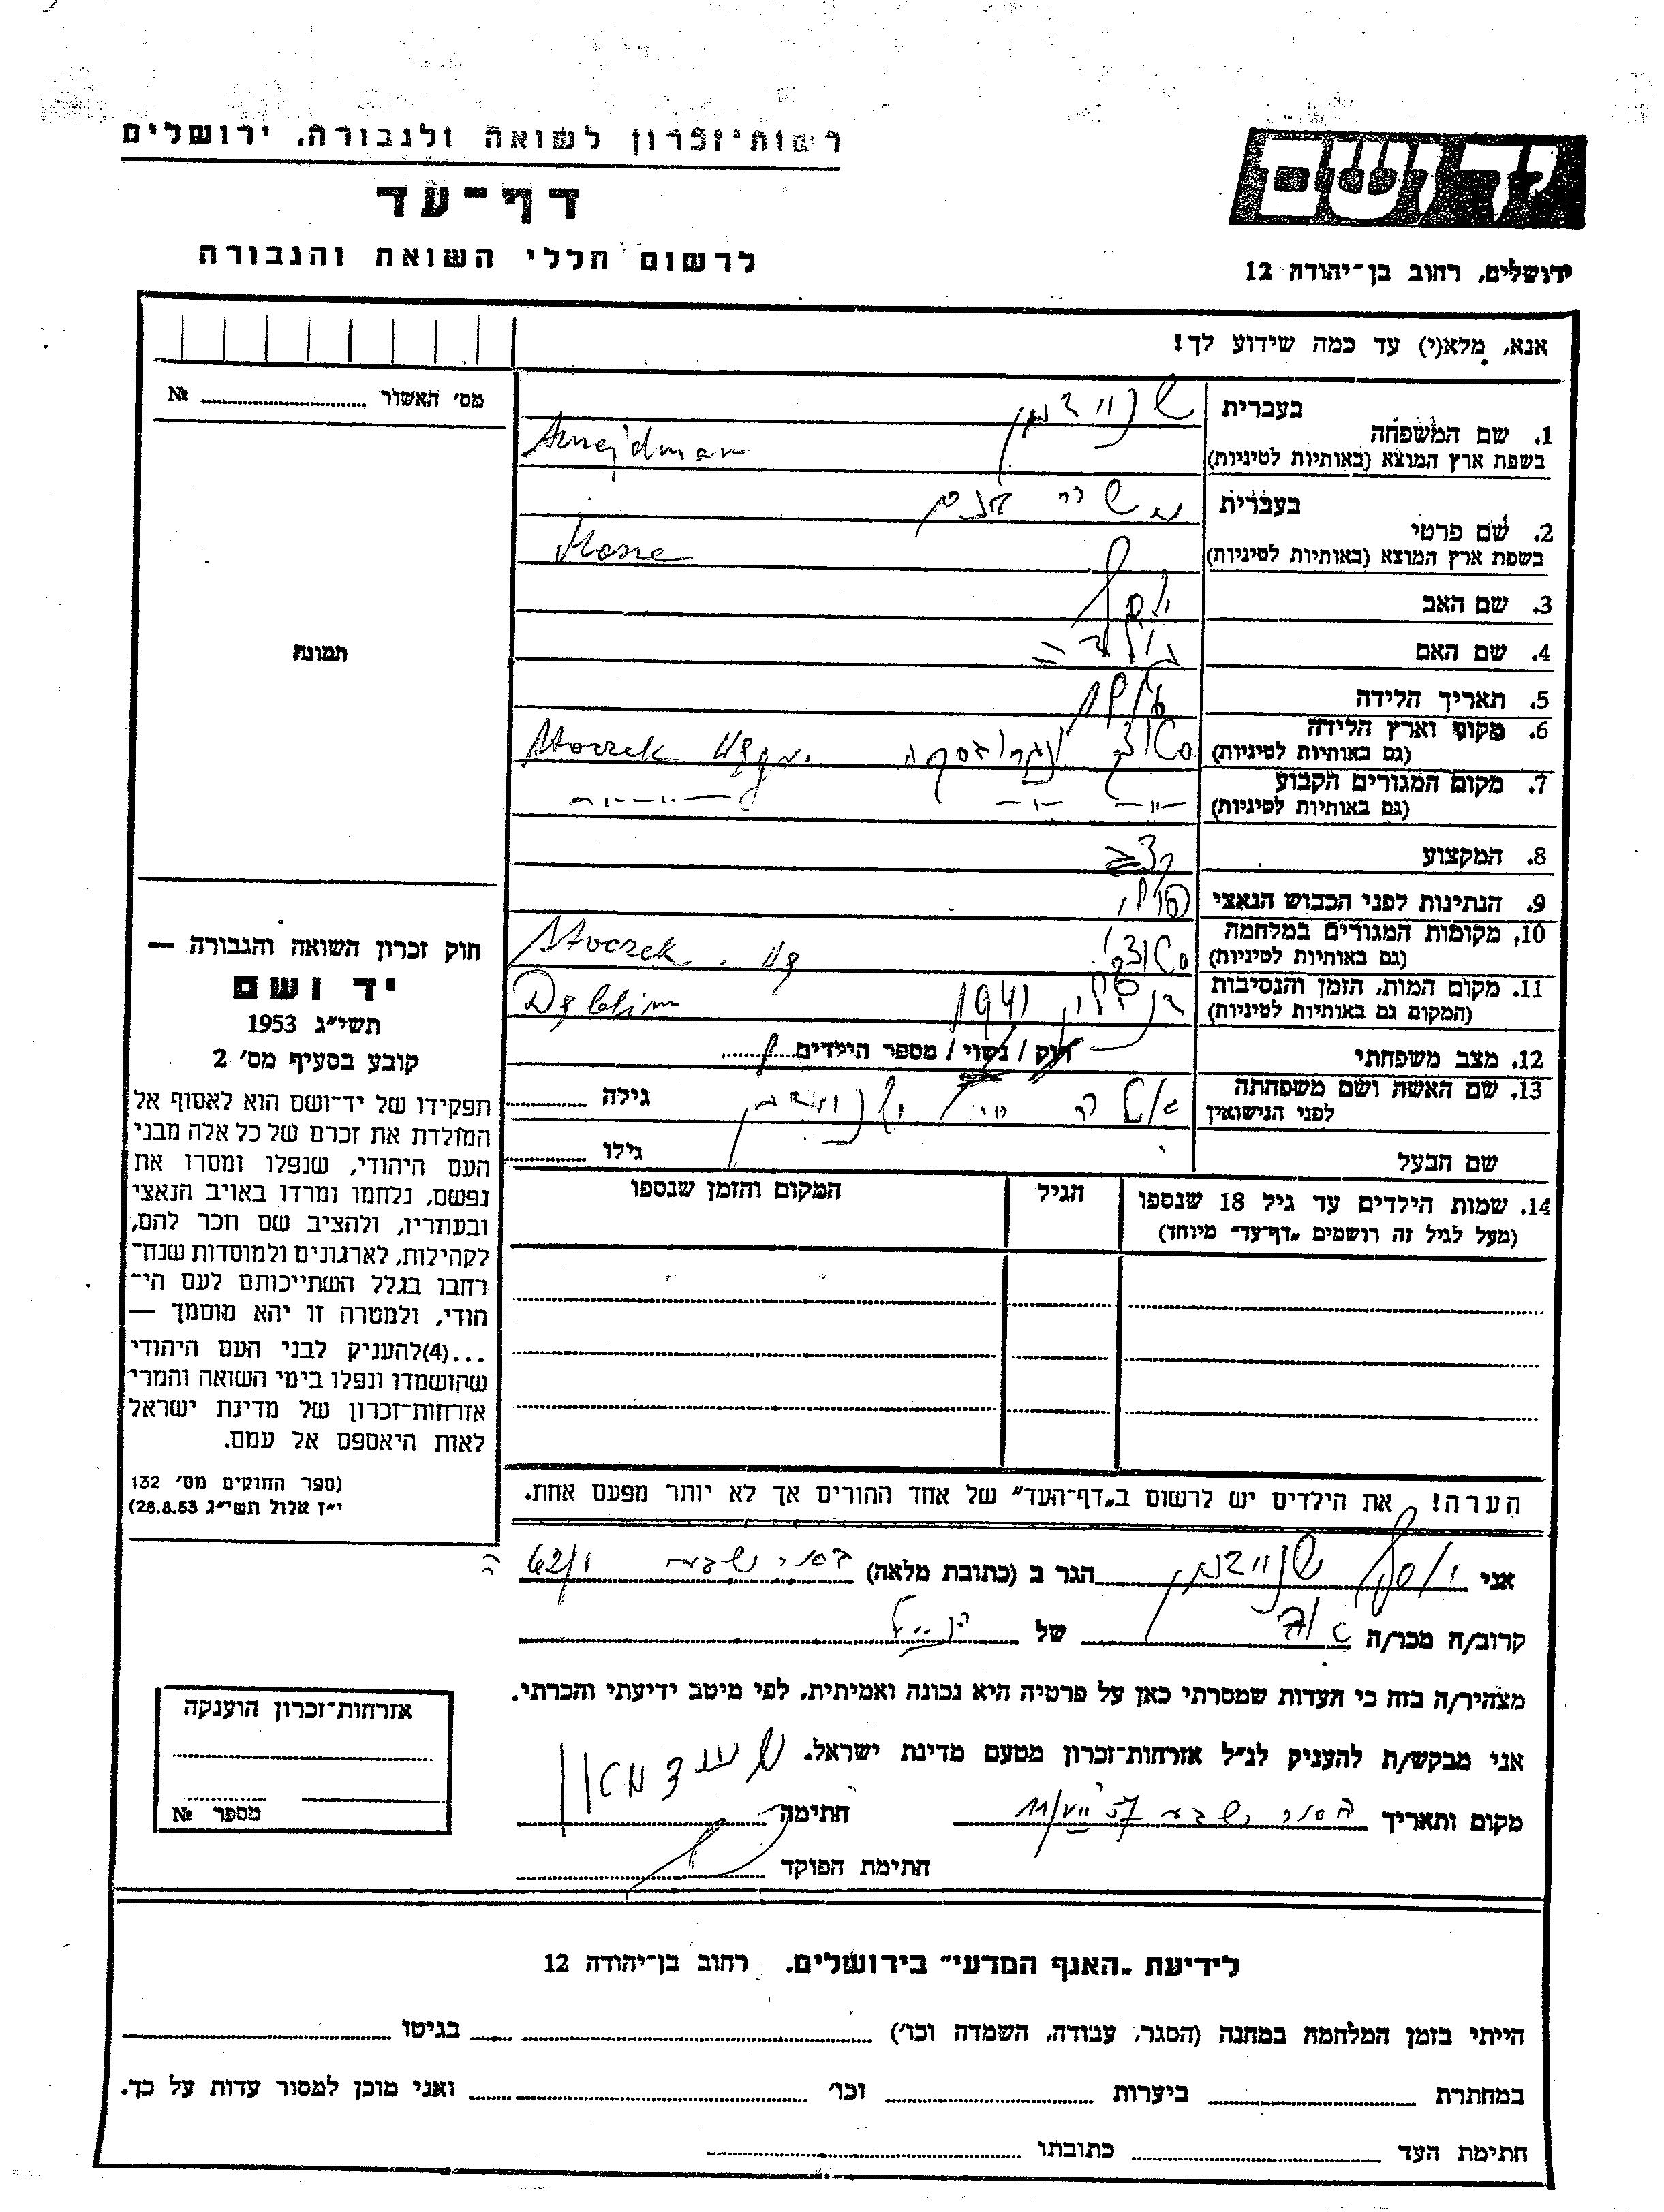 רשות־זכרון לשואה ולגבורה, ירושלים
דף־עד
לרשום חללי השואה והגבורה
יד ושם
ירושלים, רחוב בן־יהודה 12
אנא, מלא(י) עד כמה שידוע לך!
מס׳ האשור ... №
תמונה
1. שם המשפחה
בעברית שניידמן
בשפת ארץ המוצא (באותיות לטיניות) Sznajdman
2. שם פרטי
בעברית משה
בשפת ארץ המוצא (באותיות לטיניות)
3. שם האב יוסף
4. שם האם
5. תאריך הלידה
6. מקום וארץ הלידה
(גם באותיות לטיניות) Stoczek Węgr.
7. מקום המגורים הקבוע
(גם באותיות לטיניות) —״— —״— —״—
8. המקצוע קצב
9. הנתינות לפני הכבוש הנאצי
10. מקומות המגורים במלחמה
(גם באותיות לטיניות) Stoczek. Wg
11. מקום המות, הזמן והנסיבות
(המקום גם באותיות לטיניות) 1941 Dęblin
12. מצב משפחתי רוק / נשוי / מספר הילדים
13. שם האשה ושם משפחתה
לפני הנישואין שניידמן גילה
שם הבעל גילו
14. שמות הילדים עד גיל 18 שנספו
(מעל לגיל זה רושמים „דף־עד״ מיוחד)
הגיל
המקום והזמן שנספו
הערה! את הילדים יש לרשום ב„דף־העד״ של אחד ההורים אך לא יותר מפעם אחת.
חוק זכרון השואה והגבורה —
יד ושם
תשי״ג 1953
קובע בסעיף מס׳ 2
תפקידו של יד־ושם הוא לאסוף אל
המולדת את זכרם של כל אלה מבני
העם היהודי, שנפלו ומסרו את
נפשם, נלחמו ומרדו באויב הנאצי
ובעוזריו, ולהציב שם וזכר להם,
לקהילות, לארגונים ולמוסדות שנח־
רחבו בגלל השתייכותם לעם הי־
הודי, ולמטרה זו יהא מוסמך —
...(4)להעניק לבני העם היהודי
שהושמדו ונפלו בימי השואה והמרי
אזרחות־זכרון של מדינת ישראל
לאות היאספם אל עמם.
(ספר החוקים מס׳ 132
י״ז אלול תשי״ג 28.8.53)
אני יוסף שניידמן הגר ב (כתובת מלאה) 62/1
קרוב/ה מכר/ה של
מצהיר/ה בזה כי העדות שמסרתי כאן על פרטיה היא נכונה ואמיתית, לפי מיטב ידיעתי והכרתי.
אני מבקש/ת להעניק לנ״ל אזרחות־זכרון מטעם מדינת ישראל.
מקום ותאריך חתימה
חתימת הפוקד
אזרחות־זכרון הוענקה
מספר №
לידיעת „האגף המדעי״ בירושלים. רחוב בן־יהודה 12
הייתי בזמן המלחמה במחנה (הסגר, עבודה, השמדה וכו׳) בגיטו
במחתרת ביערות וכו׳ ואני מוכן למסור עדות על כך.
חתימת העד כתובתו